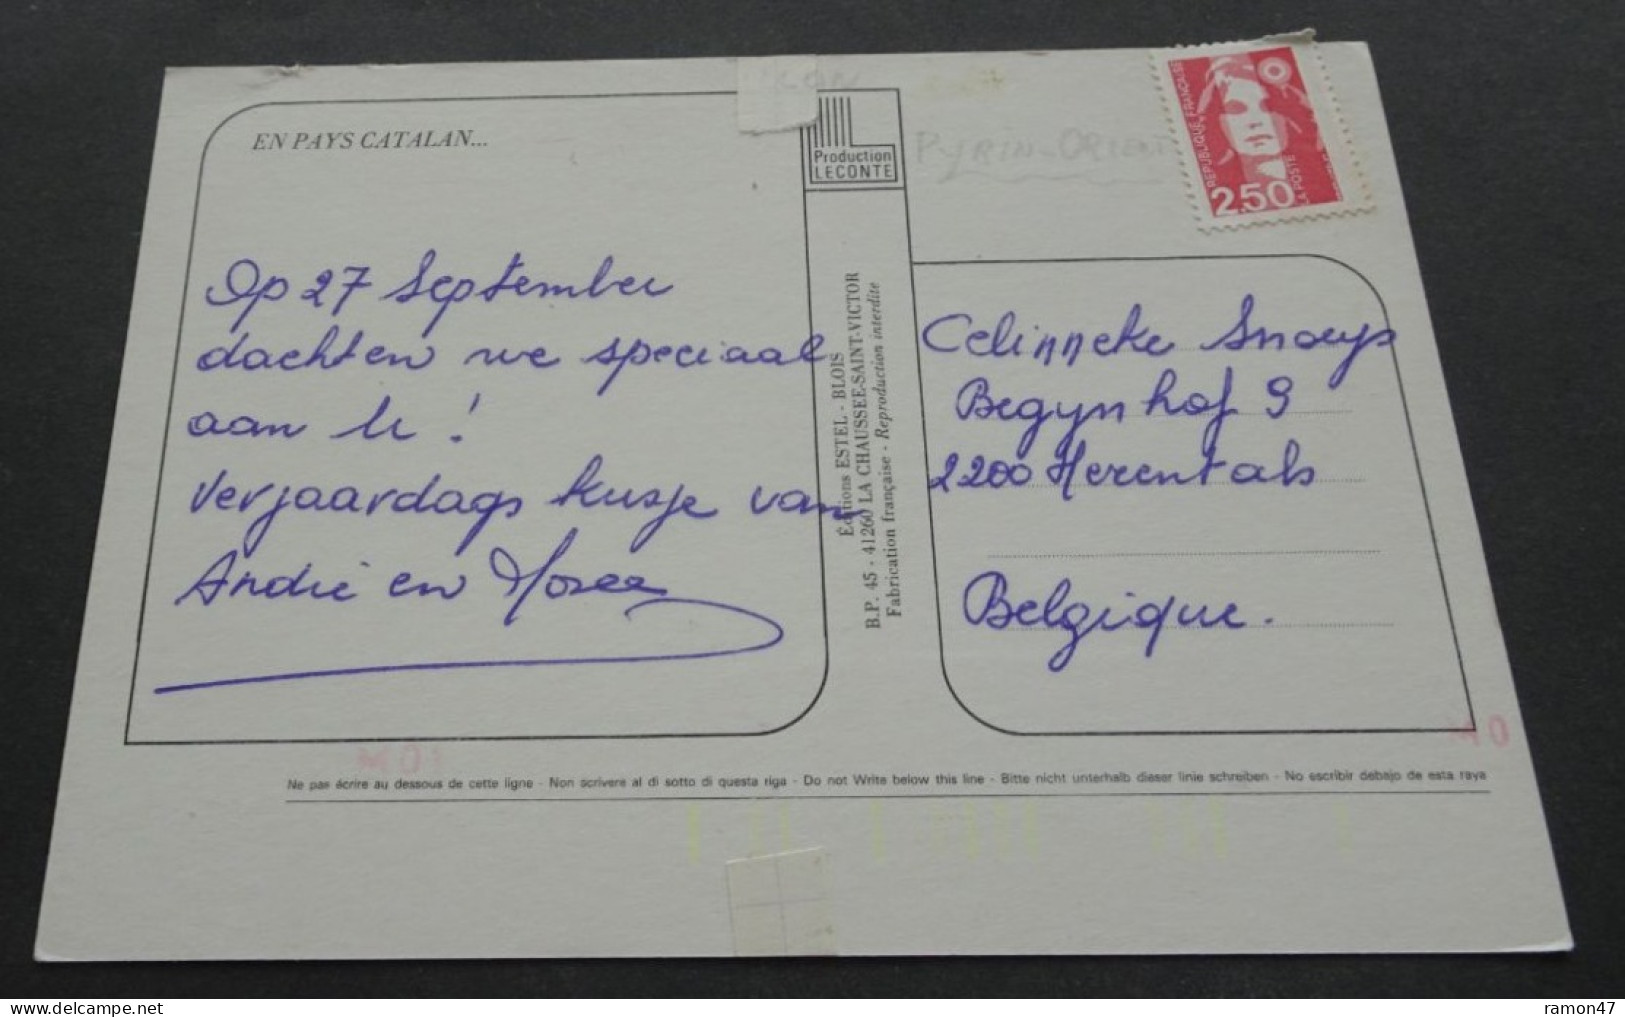 EN PAYS CATALAN...
Op 27 September
dachten we speciaal
aan u!
verjaardags kusje van
André en
Production
LECONTE
Éditions ESTEL - BLOIS
B.P. 45 - 41260 LA CHAUSSEE-SAINT-VICTOR
Fabrication française - Reproduction interdite
PYRIN-ORIENT
REPUBLIQUE FRANÇAISE
2,50
LA POSTE
Celinneke Snoeys
Begynhof 9
2200 Herentals
Belgique.
Ne pas écrire au dessous de cette ligne - Non scrivere al di sotto di questa riga - Do not Write below this line - Bitte nicht unterhalb dieser linie schreiben - No escribir debajo de esta raya
ramon47